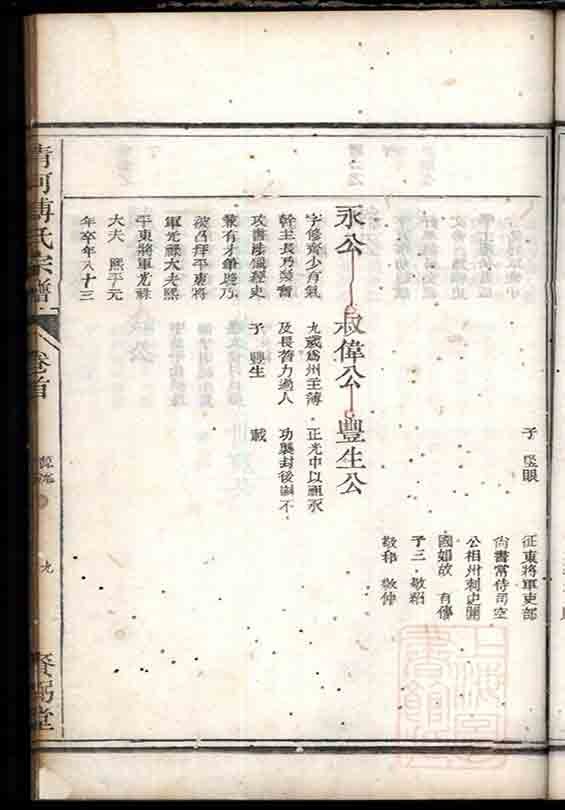 子 豎眼
征東將軍吏部
尚書常侍司空
公相州刺史開
國如故 有傳
子三 敬紹
敬和 敬仲
永公
字修齊少有氣
幹主長乃發奮
攻書涉獵經史
兼有才筆
被召拜平東將
軍光祿大夫熙
平東將軍光祿
大夫 熙平元
年卒年八十三
叔偉公
九歲為州主簿
及長膂力過人
子 豐生
豐生公
正光中以祖永
功襲封後嗣不
載
清河傅氏宗譜
卷首
九
賚弼堂